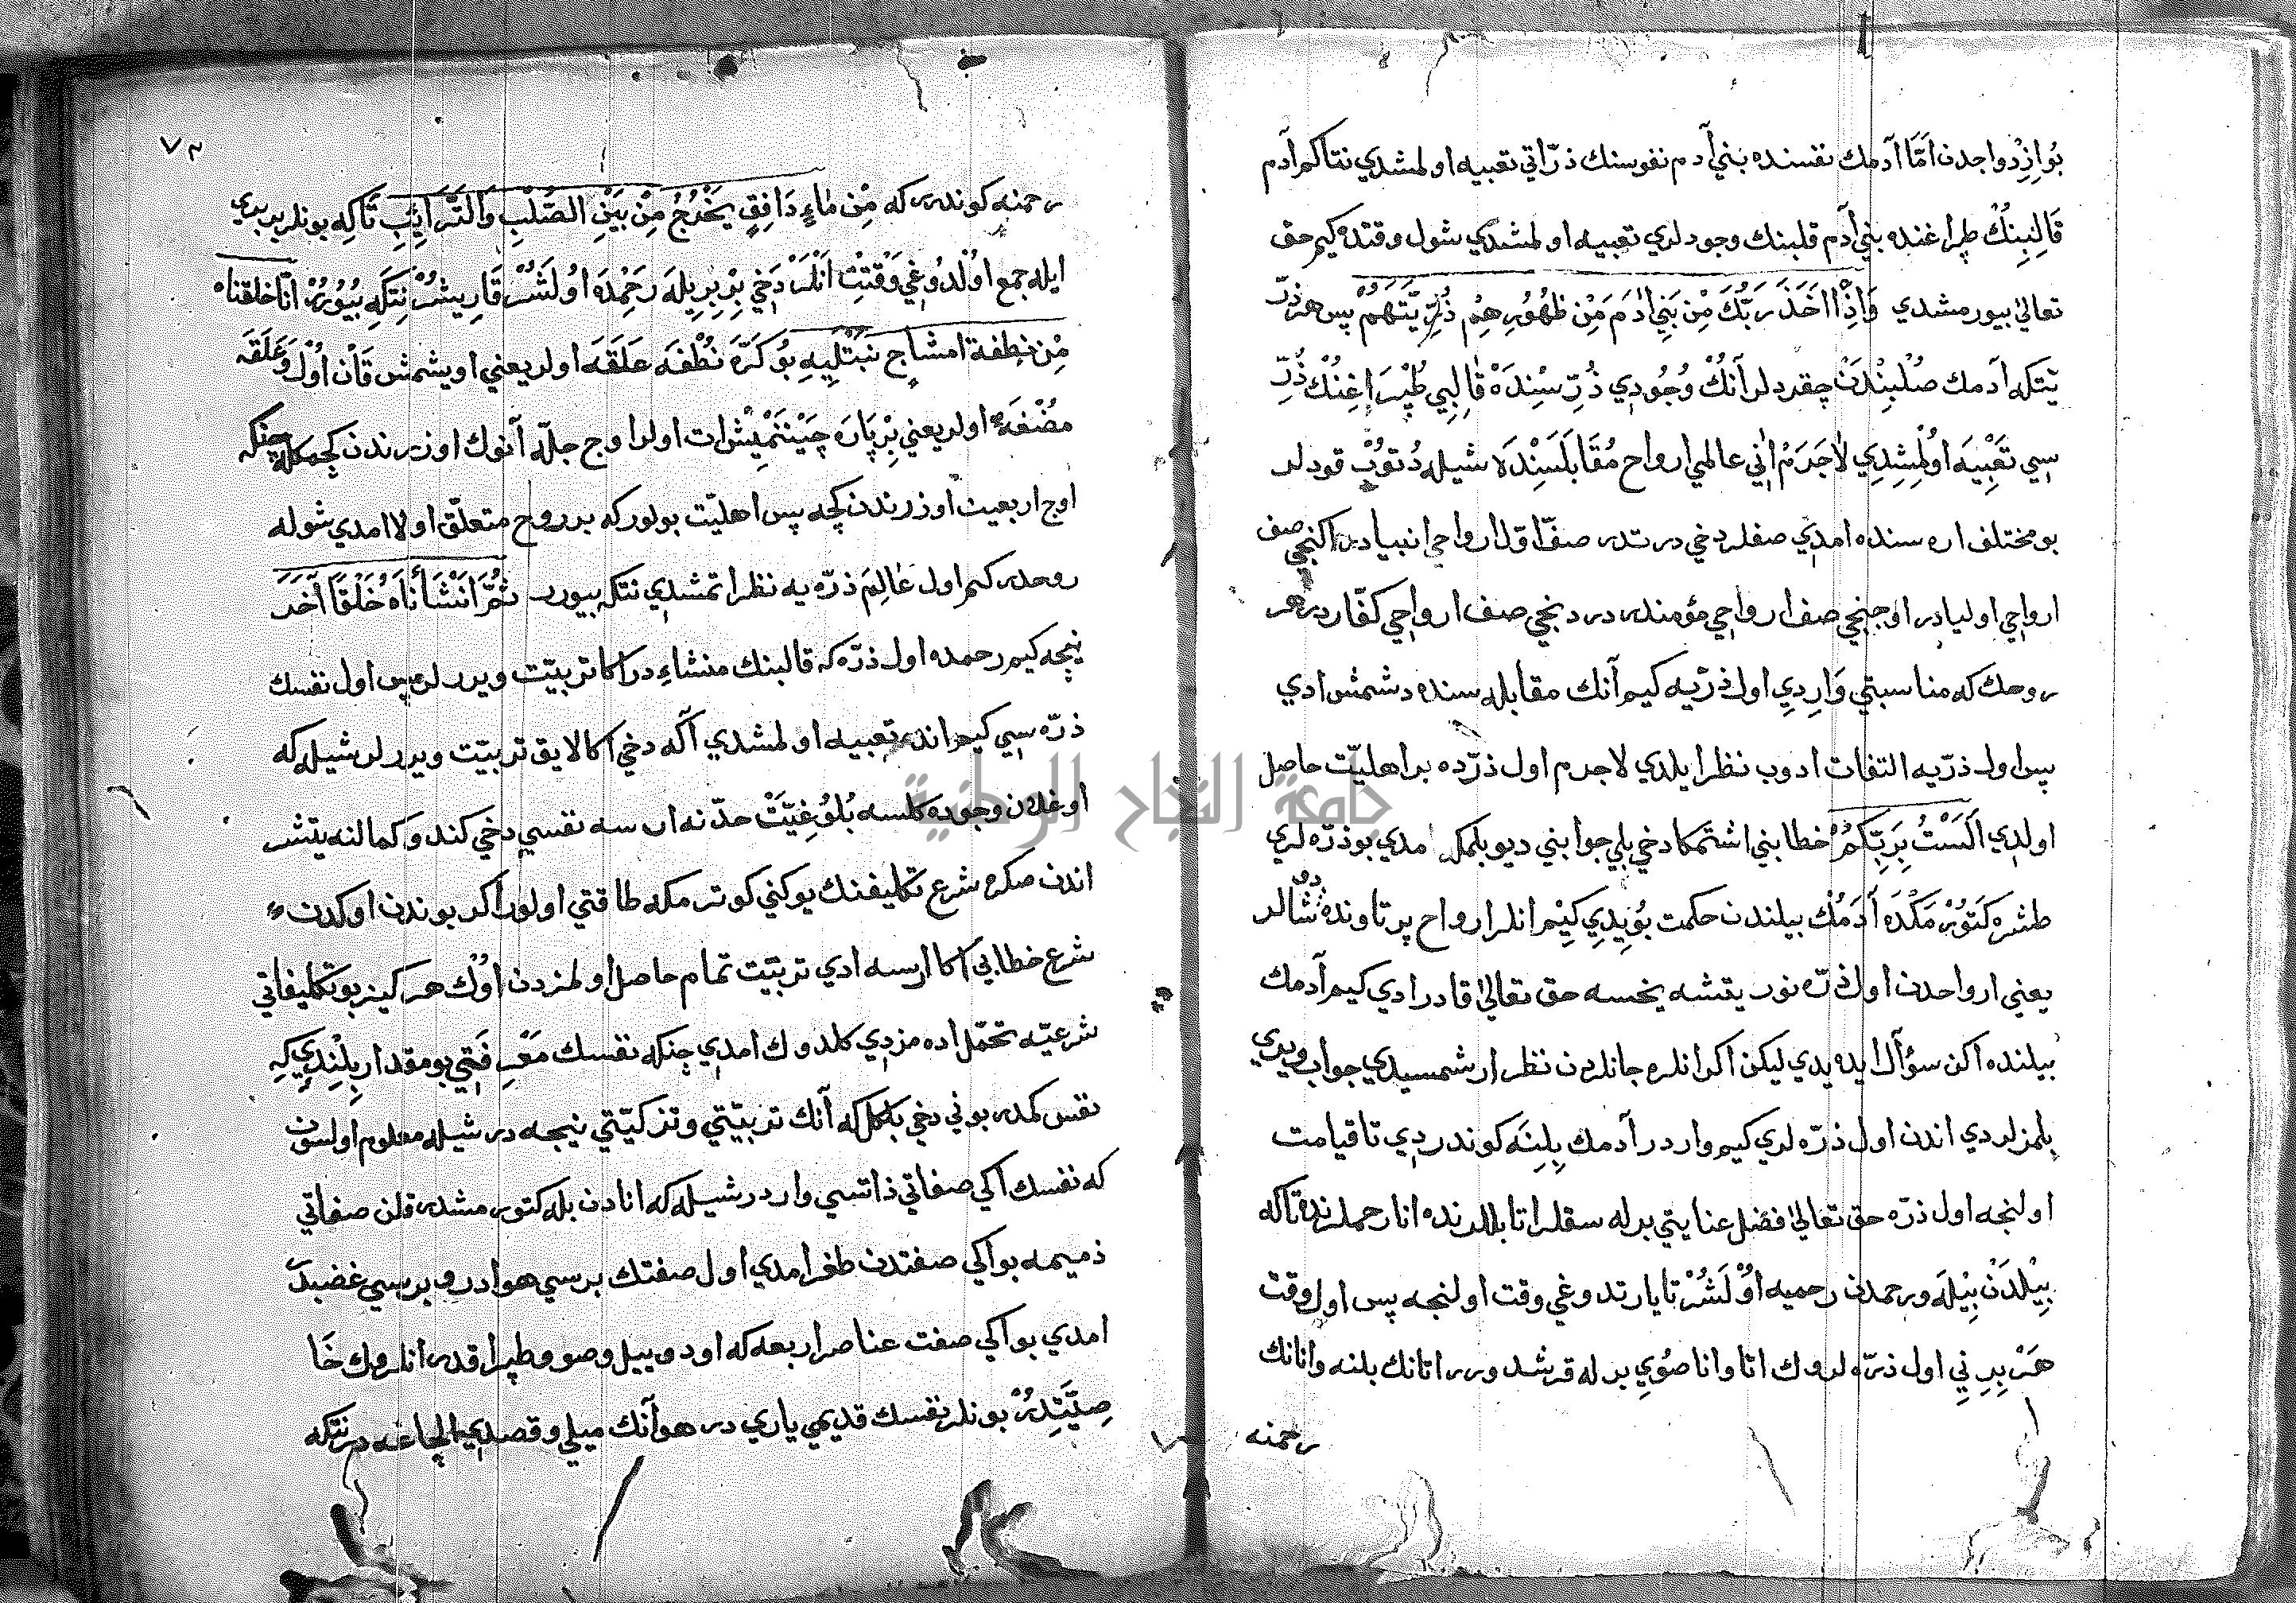 بو ازدواجدن اما آدمك نفسنده بني آدم نفوسنك ذرّاتي تعبيه اولمشدي نتاكم آدم
قَالِبِنُكْ طپراغنده بني آدم قلبنك وجودلري تعبيه اولمشدي شول وقتده كيم حق
تعالى بيورمشدي وَاِذْ اَخَذَ رَبُّكَ مِنْ بَنِي اٰدَمَ مِنْ ظُهُورِهِمْ ذُرِّيَّتَهُمْ پس هر ذرّ
نتكه آدمك صُلْبِنْدَنْ چقردلر آنُكْ وُجُودِي ذُرِّسِنْدَهْ قَالِبِي طُپْرَاغِنُكْ ذُرِّ
سِي تَعْبِيَه اُولْمِشِدِي لاٰجَرَمْ اٰنِي عالمي ارواح مُقَابَلَسِنْدَه شيله دُتُوبْ قودلر
بو مختلف اره سنده امدي صفلر دخي درتدر صفّ اوّل ارواحي انبيادر اكنجي صف
ارواحي اوليادر اوجنجي صف ارواحي مؤمندر دردنجي صف ارواحي كفّاردر هر
روحك كه مناسبتي وَارِدِي اول ذرّيه كيم آنك مقابله سنده دشمش ادي
پس اول ذرّيه التفات ادوب نظر ايلدي لاجرم اول ذرّده بر اهليّت حاصل
اولدي اَلَسْتُ بِرَبِّكُمْ خطابني اشتمكا دخي بلي جوابني ديو بلمكه امدي بو ذرّه لري
طشره كَتُورْمَكْدَه آدَمُكْ بيلندن حكمت بُويدِي كِيْم انلر ارواح پرتاونده دوشالر
يعني ارواحدن اول ذرّه نور يتشه يخسه حق تعالى قادر ادي كيم آدمك
بيلنده اكن سؤال ايده يدي ليكن اكر انلره جانلردن نظر ارشمسيدي جواب ويردي
بلمزلردي اندن اول ذرّه لري كيم واردر آدمك بِلِنَه كوندردي تا قيامت
اولنجه اول ذرّه حق تعالى فضل عنايتي برله سقلر اتا بللرنده انا رحملرنده تاكه
بِيْلدَنْ بِيْلَه و رحمدن رحميه اُولَشُرْ تا يارتدوغي وقت اولنجه پس اول وقت
هَرْ بِرِنِي اول ذرّه لروك اتا وانا صُويِ برله قرشدورر اتانك بلنه وانانك
رحمنه
رحمنه كوندرر كه مِنْ مَاءٍ دَافِقٍ يَخْرُجُ مِنْ بَيْنِ الصُّلْبِ وَالتَّرَائِبِ تَاكِه بونلر بربري
ايله جمع اُولْدُوغِي وَقْتِنْ اَنْلَرْ دَخِي بِرْبِرِيلَه رَحْمِدَه اُولَشُرْ قَارِيشُرْ نِتَكِه بُيُورُرْ انّا خلقناه
مِنْ نطفة امشاج نَبْتَلِيهِ بُوكَرَّه نُطْفَه عَلَقَه اولر يعني اويشمش قَانْ اُولُرْ وَعَلَقَه
مضْغَه اولر يعني بِرْپَارَه چَيْنَنْمِيشْ ات اولر اوج جلّه آنوك اوزرندن كچمكله چنكه
اوج اربعين اوزرندن كچه پس اهليّت بولور كه بر روح متعلّق اولا امدي شوله
روحدر كم اول عٰالِمَ ذرّه يه نظر اتمشدي نتكه بيورر ثُمَّ اَنْشَأْنَاهُ خَلْقًا آخَرَ
نيجه كيم رحمده اول ذرّه كه قالبنك منشاءِ در اكا تربيّت ويررلر پس اول نفسك
ذرّه سِي كيم انده تعبيه اولمشدي آكه دخي اكا لايق تربيّت ويررلر شيله كه
اوغلان وجوده كلسه بُلُوغِيَّتْ حدّنه ارسه نفسي دخي كندو كمالنه يتشر
اندن صكره شرع تكليفنك يوكني كوترمكه طاقتي اولور اكر بوندن اوكدن
شرع خطابي اكا ارسه ادي تربيّت تمام حاصل اولمزدن اوُّك هركيز بو تكليفاتي
شرعيّه تحمّل اده مزدي كلدوك امدي چنكه نفسك مَعْرِفَتِي بو مقدار بِلِنْدِي كِه
نفس كمدر بوني دخي بلمك كه آنك تربيّتي وتزكيّتي نيجه در شيله معلوم اولسون
كه نفسك اكي صفاتي ذاتسي واردر شيله كه انادن بله كتورمشدر قلن صفاتي
ذميمه بو اكي صفتدن طغر امدي اول صفتك برسي هوادر و برسي غضبدر
امدي بو اكي صفت عناصر اربعه كه اود ويىل وصو وطپراقدر انلروك خَا
صِيَّتِدِرْ بونلر نفسك قديمي ياري در هوآنك ميلي وقصدي الچاغه در نتكه